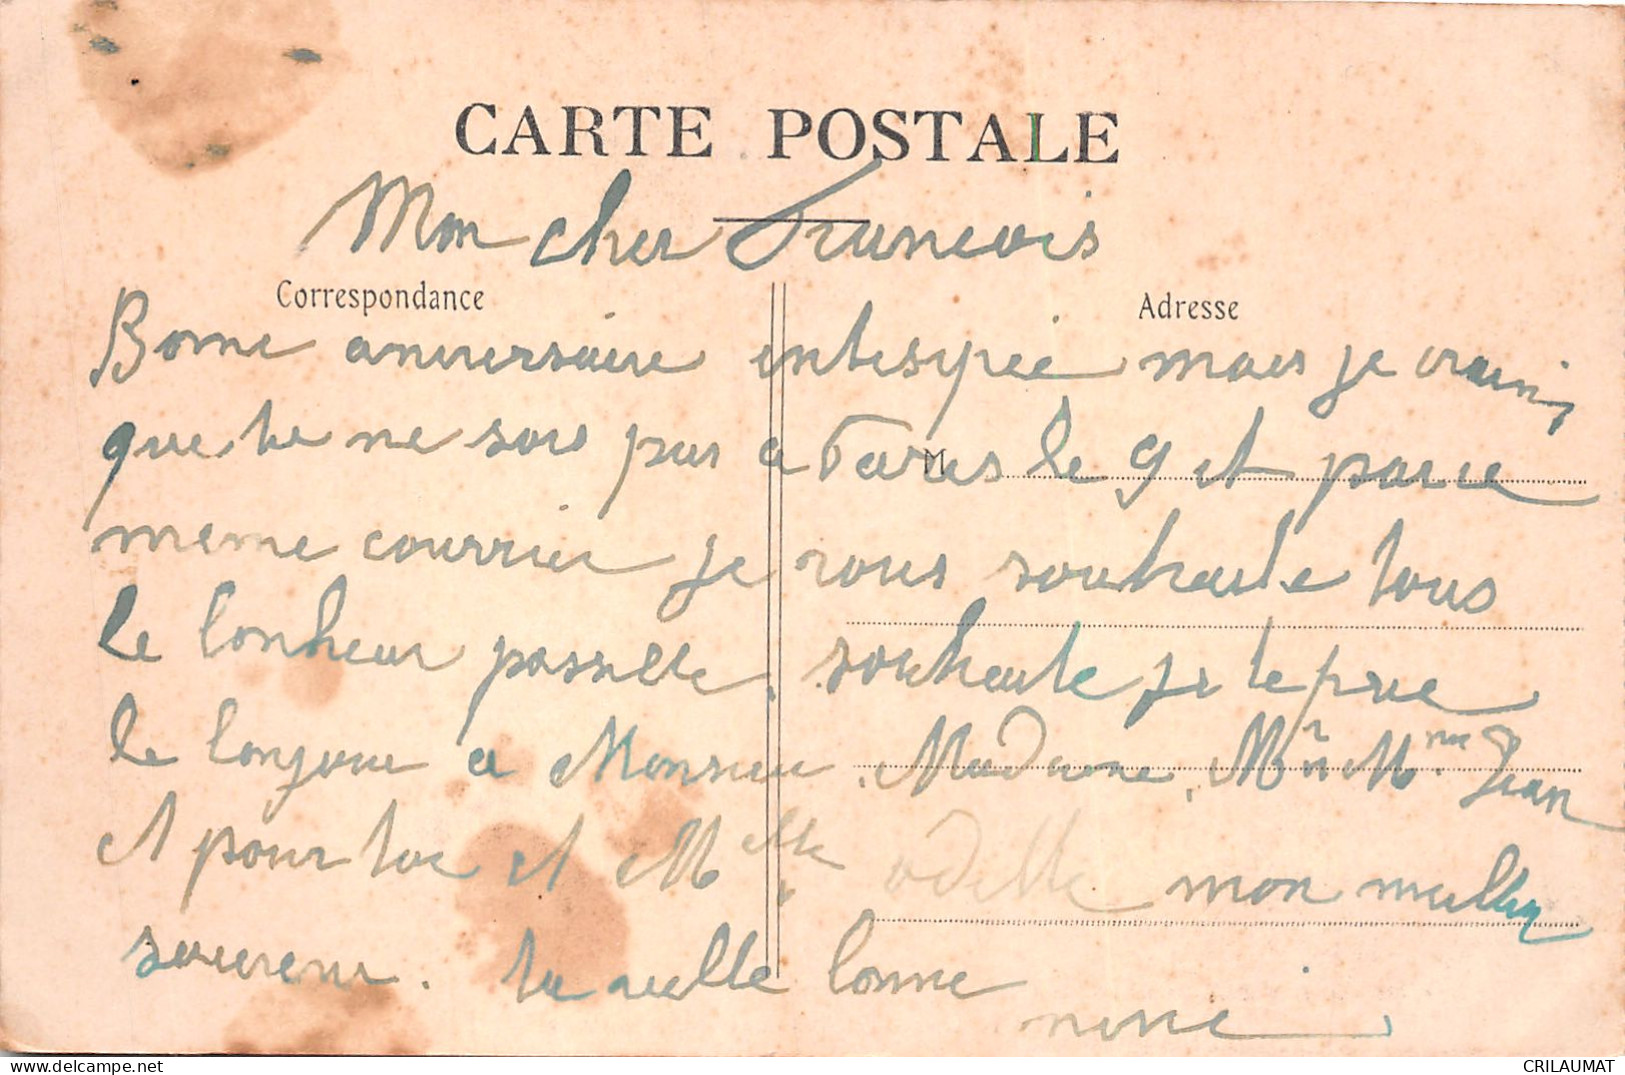 CARTE POSTALE
Mon cher Francois
Correspondance
Adresse
Bonne aniversaire entisipée mais je crains
que tu ne sois pas a Paris le 9 et par ce
M
meme courrier je vous souhaite tous
le bonheur possible, souhaite je te prie
le bonjour a Monsieur, Madame, Mr Mme Jean
et pour toi et Melle odette mon meilleur
souvenir. ta vielle bonne
CRILAUMAT